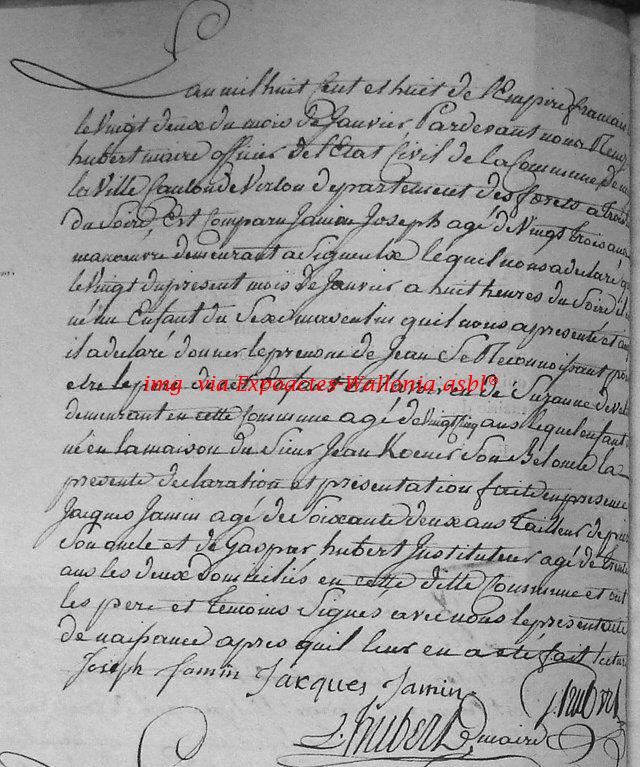 L'an mil huit Cent et huit de l'Empire francais
le Vingt deux du mois de Janvier Pardevant nous
hubert maire officier de l'Etat Civil de la Commune de
la Ville Canton de Virton departement des forets a trois
du Soire, Est Comparu Jamin Joseph agé de Vingt trois ans
manoeuvre demeurant a Signeulx lequel nous a declaré q
le Vingt du present mois de Janvier a huit heures du Soire il
né un Enfant du Sexe masculin quil nous a presente et au
il a declaré donner le prenom de Jean Se Reconnoissant pour
etre le pere de Suzanne
demeurant en cette Commune agé de vingt ans lequel enfant
né en la maison du Sieur Jean Son Bel oncle la
presente declaration et presentation faite en presence
Jacques Jamin agé de Soixante deux ans Tailleur de
Son oncle et de Gaspar hubert Instituteur agé de trente
ans les deux Domiciliés en cette ditte Commune et ont
les pere et temoins Signes avec nous le present acte
de naissance apres quil leur en a eté fait lecture
img via Expoactes Wallonia asbl®
Joseph Jamin Jacques Jamin
hubert
hubert maire